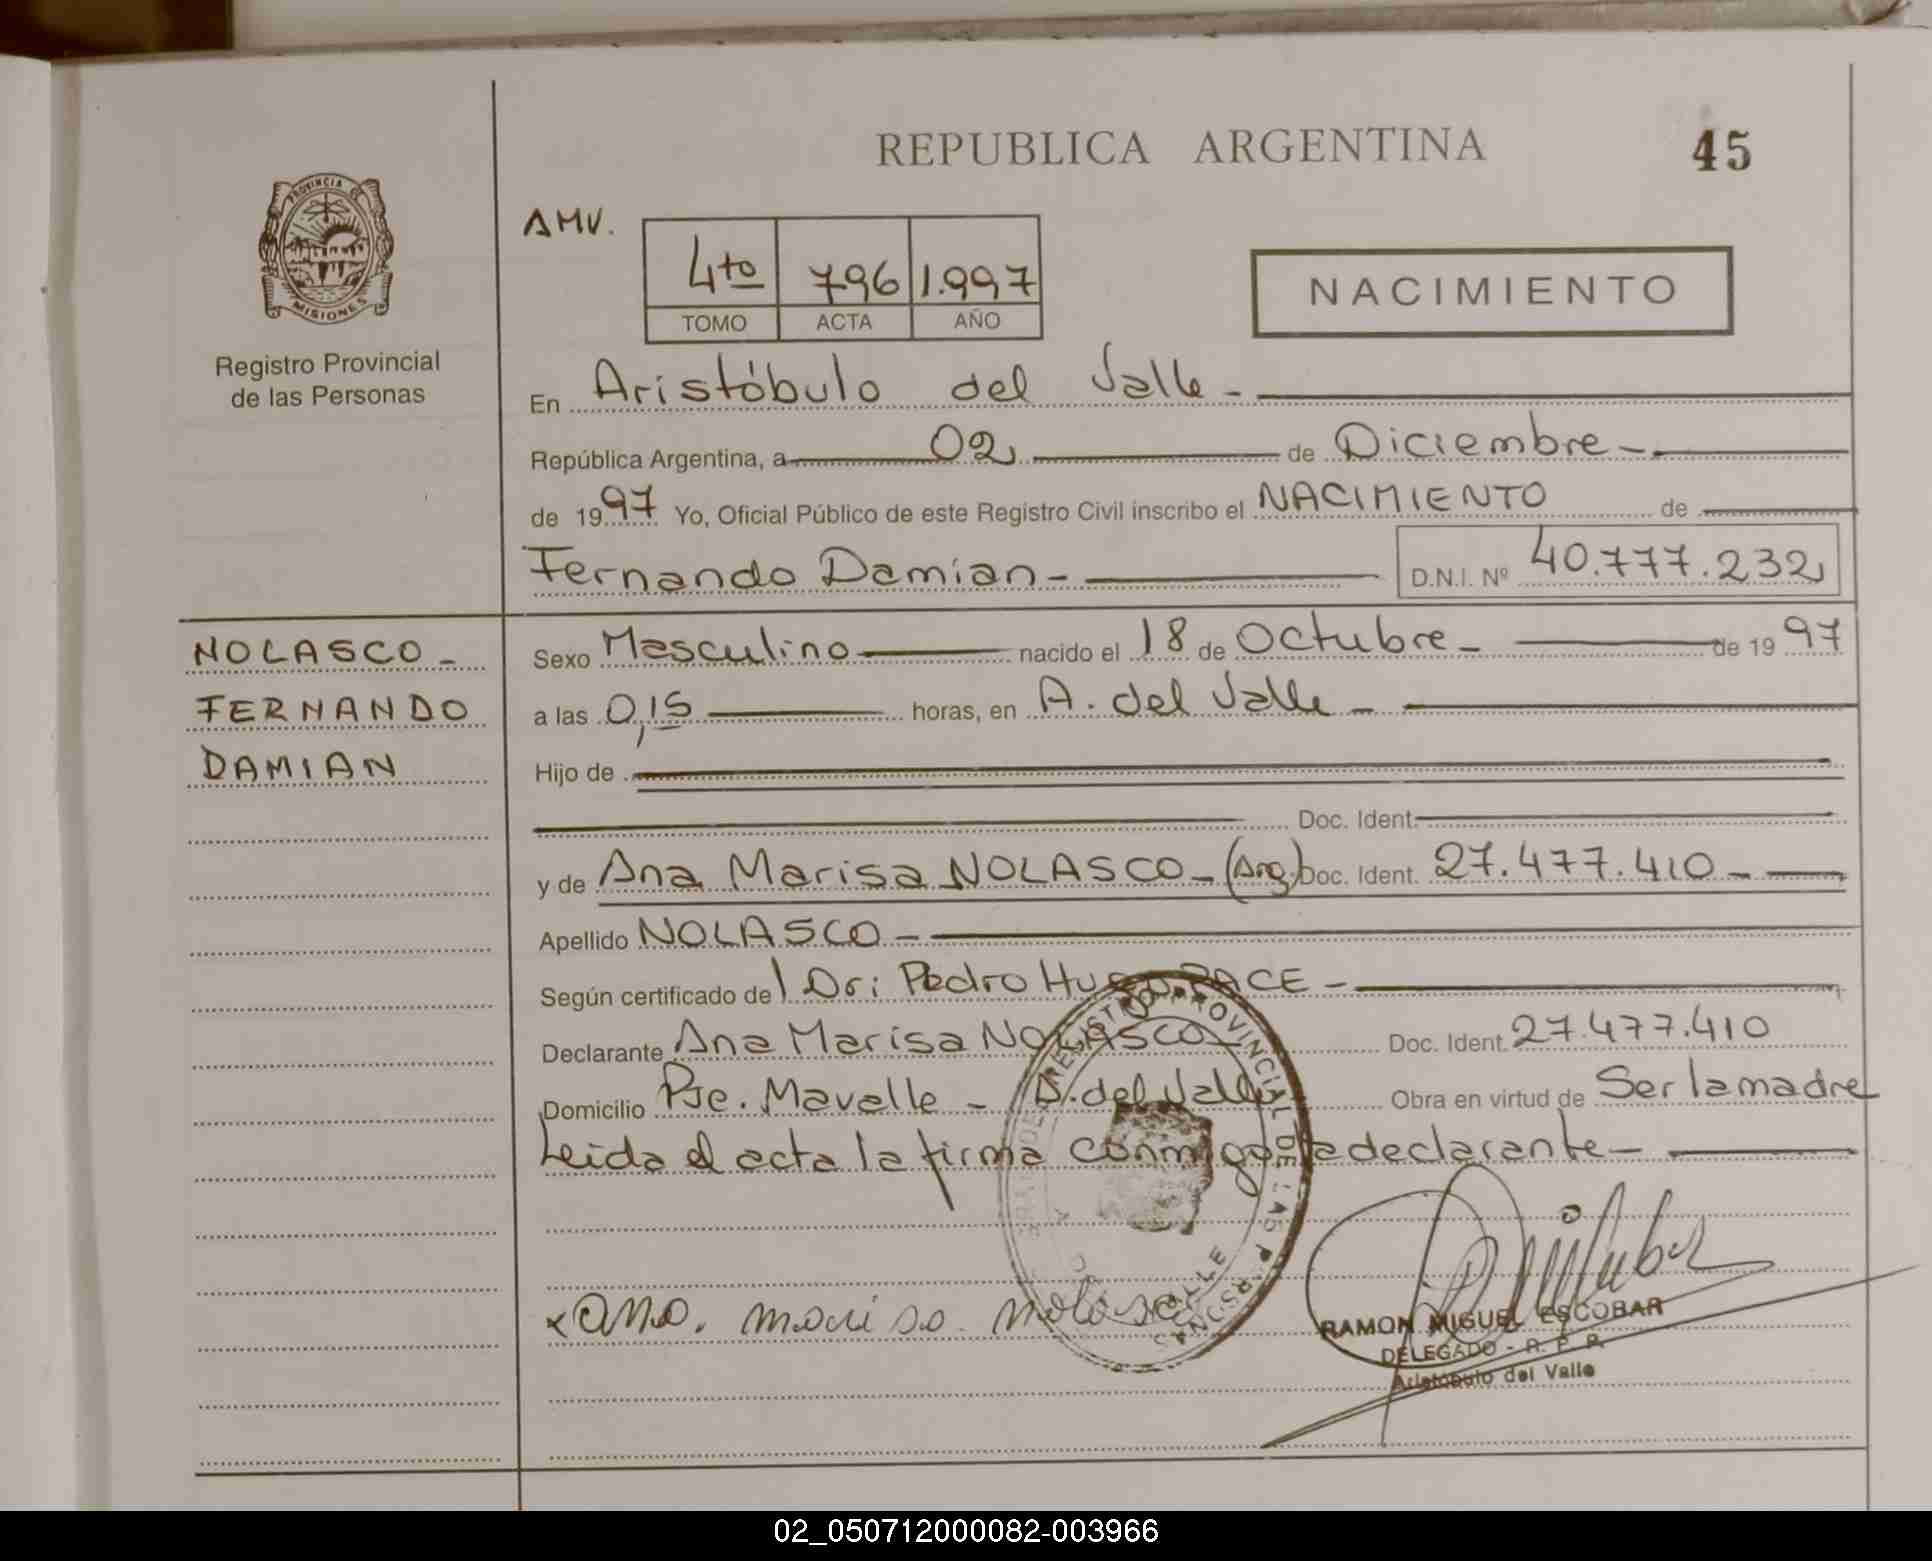 REPUBLICA ARGENTINA
45
PROVINCIA DE
MISIONES
Registro Provincial
de las Personas
AMV.
4to 796 1.997
TOMO ACTA AÑO
NACIMIENTO
En Aristóbulo del Valle -
República Argentina, a 02 de Diciembre -
de 1997 Yo, Oficial Público de este Registro Civil inscribo el NACIMIENTO de
Fernando Damian - D.N.I. Nº 40.777.232
NOLASCO -
FERNANDO
DAMIAN
Sexo Masculino nacido el 18 de Octubre - de 1997
a las 0,15 horas, en A. del Valle -
Hijo de
Doc. Ident.
y de Ana Marisa NOLASCO - (Arg.) Doc. Ident. 27.477.410 -
Apellido NOLASCO -
Según certificado del Dr: Pedro Hugo PACE -
Declarante Ana Marisa NOLASCO - Doc. Ident. 27.477.410
Domicilio Pje. Mavalle - A. del Valle Obra en virtud de Ser la madre
Leida el acta la firma conmigo la declarante -
REGISTRO PROVINCIAL DE LAS PERSONAS
VALLE
x ana. marisa. nolasco
RAMON MIGUEL ESCOBAR
DELEGADO - R. P. P.
Aristóbulo del Valle
02_050712000082-003966